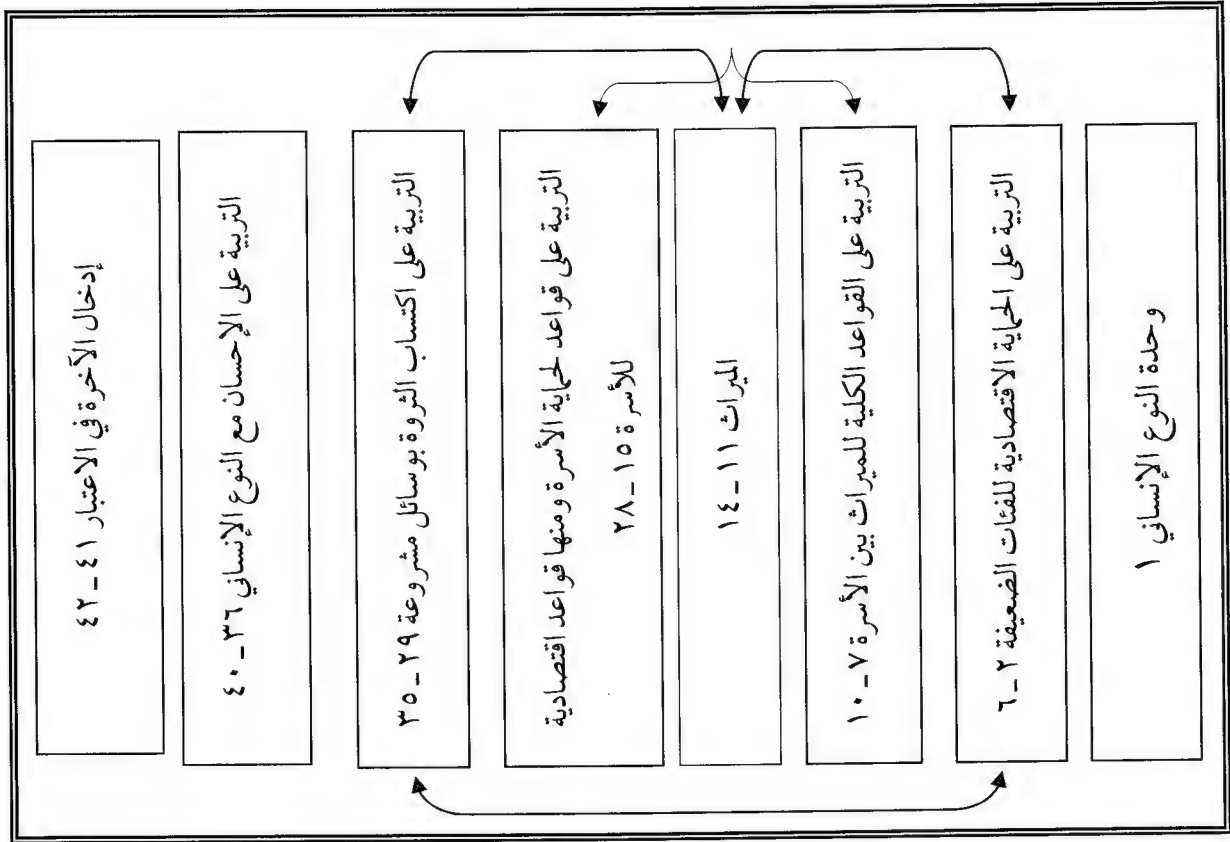 وحدة النوع الإنساني ١
التربية على الحماية الاقتصادية للفئات الضعيفة ٢ – ٦
التربية على القواعد الكلية للميراث بين الأسرة ٧ – ١٠
الميراث ١١ – ١٤
التربية على قواعد لحماية الأسرة ومنها قواعد اقتصادية
للأسرة ١٥ – ٢٨
التربية على اكتساب الثروة بوسائل مشروعة ٢٩ – ٣٥
التربية على الإحسان مع النوع الإنساني ٣٦ – ٤٠
إدخال الآخرة في الاعتبار ٤١ – ٤٢